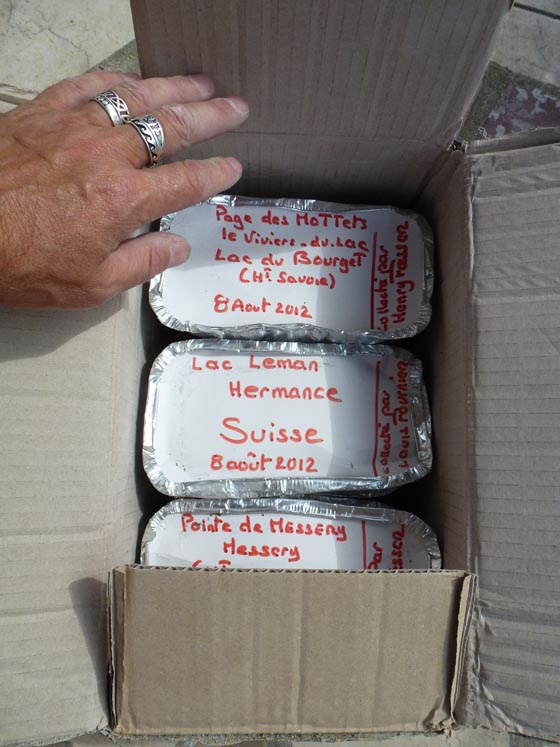 Page des MoTTets
le Viviers-du-Lac
Lac du Bourget
(Hte Savoie)
8 Aout 2012
collecté par
Henry
Lac Leman
Hermance
Suisse
8 août 2012
collecté par
Louis Fournier
Pointe de MESSERY
Messery
par